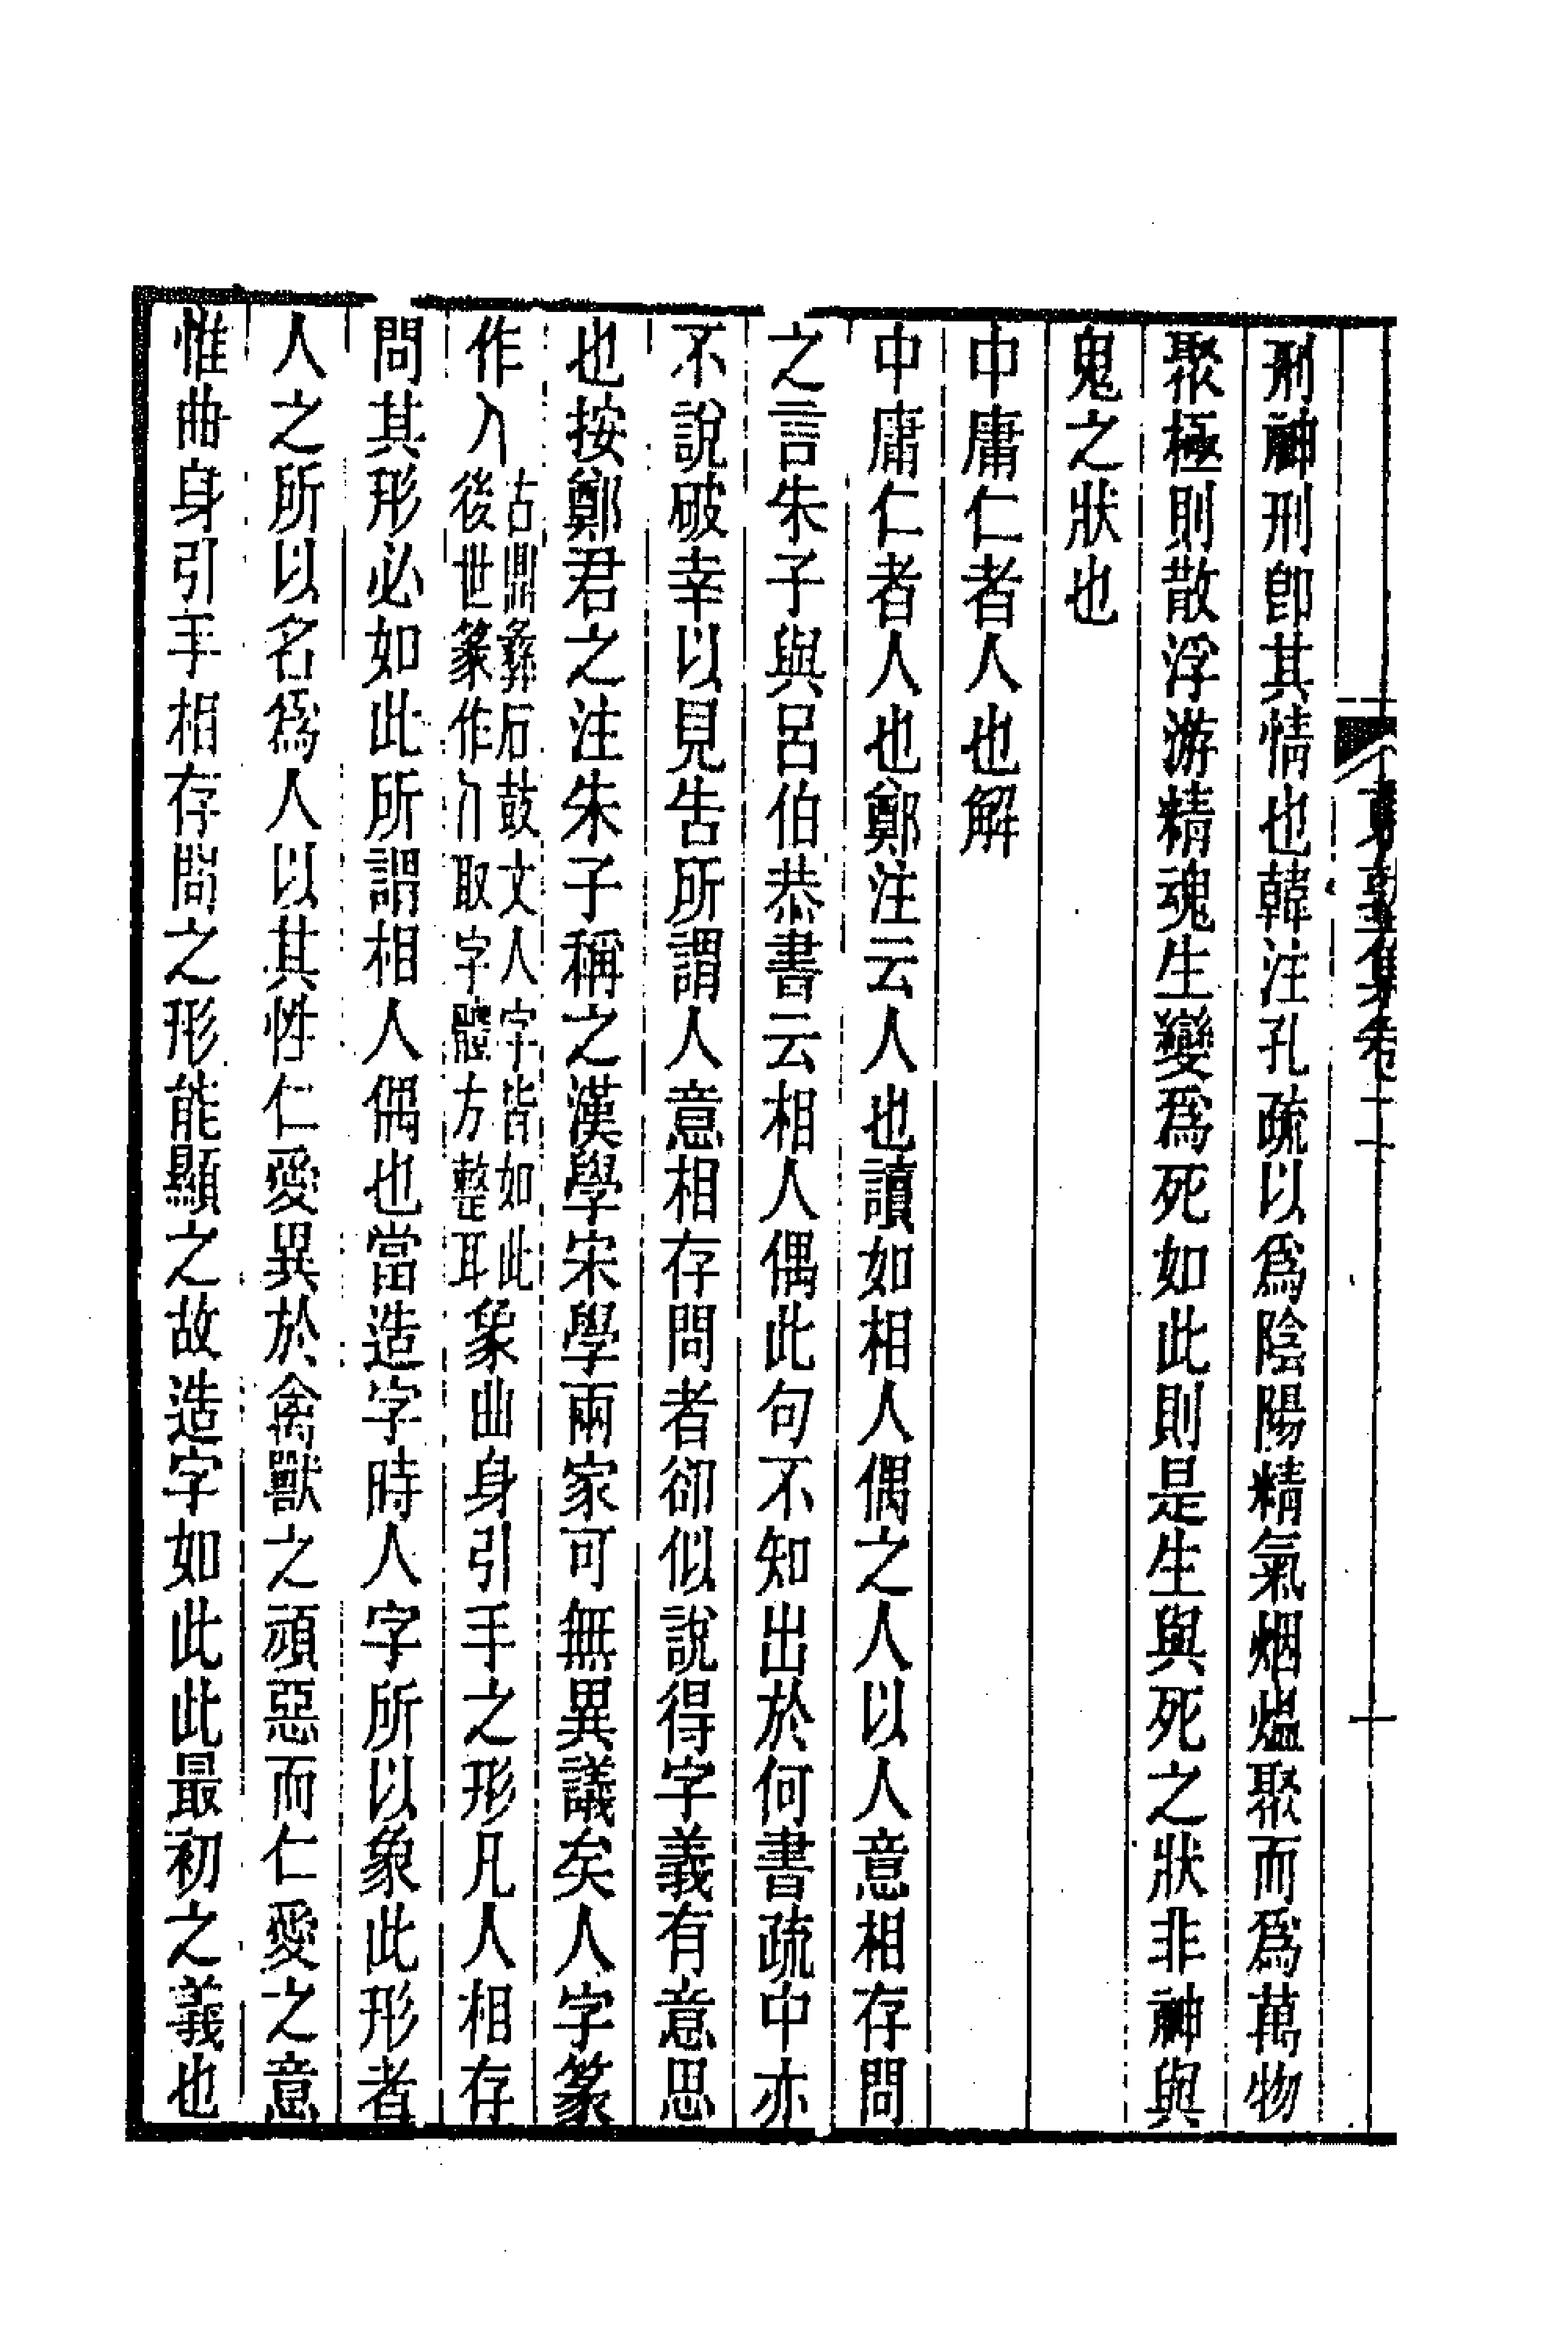 東塾集卷二 十
刑神刑卽其情也韓注孔疏以爲陰陽精氣烟熅聚而爲萬物
聚極則散浮游精魂生變爲死如此則是生與死之狀非神與
鬼之狀也
中庸仁者人也解
中庸仁者人也鄭注云人也讀如相人偶之人以人意相存問
之言朱子與呂伯恭書云相人偶此句不知出於何書疏中亦
不說破幸以見吿所謂人意相存問者卻似說得字義有意思
也按鄭君之注朱子稱之漢學宋學兩家可無異議矣人字篆
作𠆢古鼎彝石鼓文人字皆如此後世篆作𠆢取字體方整耳象曲身引手之形凡人相存
問其形必如此所謂相人偶也當造字時人字所以象此形者
人之所以名爲人以其性仁愛異於禽獸之頑惡而仁愛之意
惟曲身引手相存問之形能顯之故造字如此此最初之義也